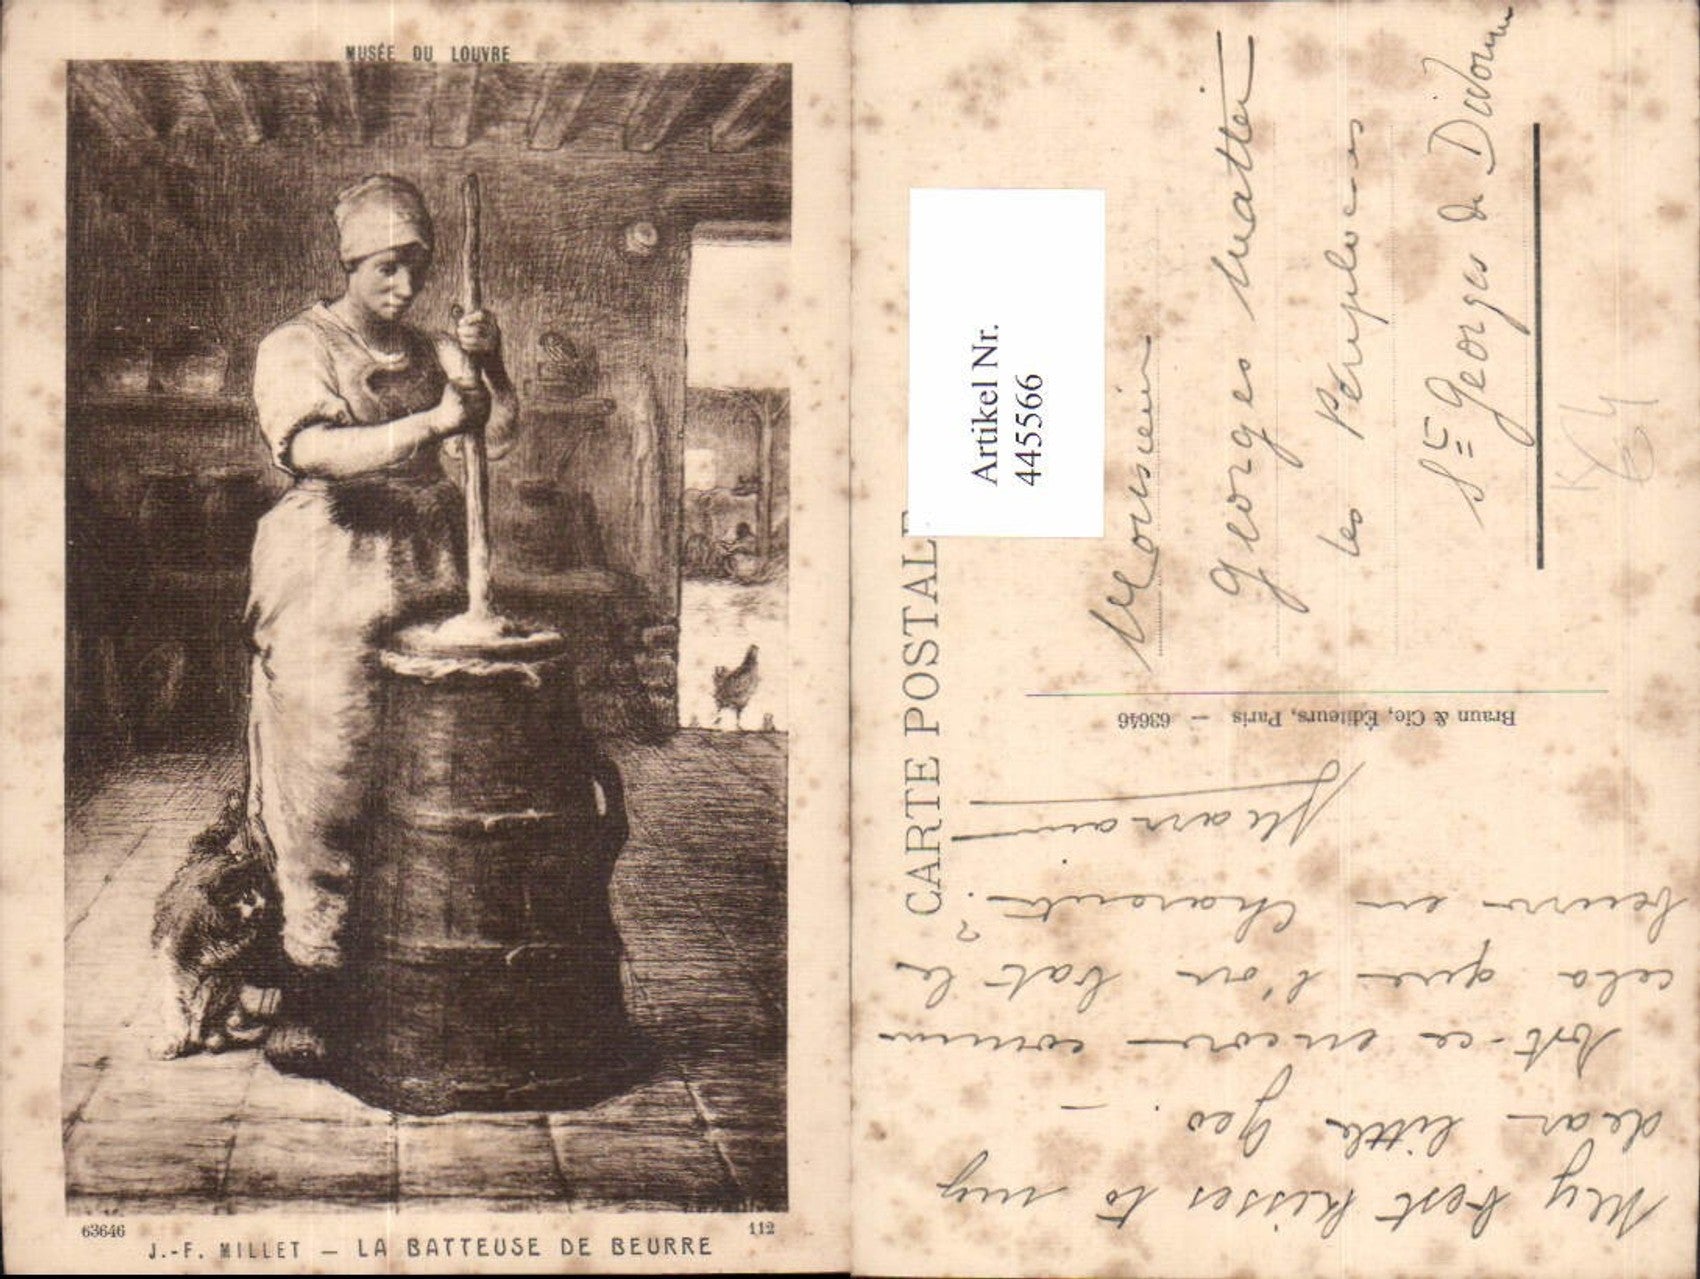 MUSÉE DU LOUVRE
63646
112
J.-F. MILLET — LA BATTEUSE DE BEURRE
CARTE POSTALE
Artikel Nr.
445566
Braun & Cie, Éditeurs, Paris — 63646
My best kisses to my
dear little Geo. —
Est-ce encore comme
cela que l'on bat le
beurre en Charente?
Monsieur
Georges
les
St Georges de Didonne